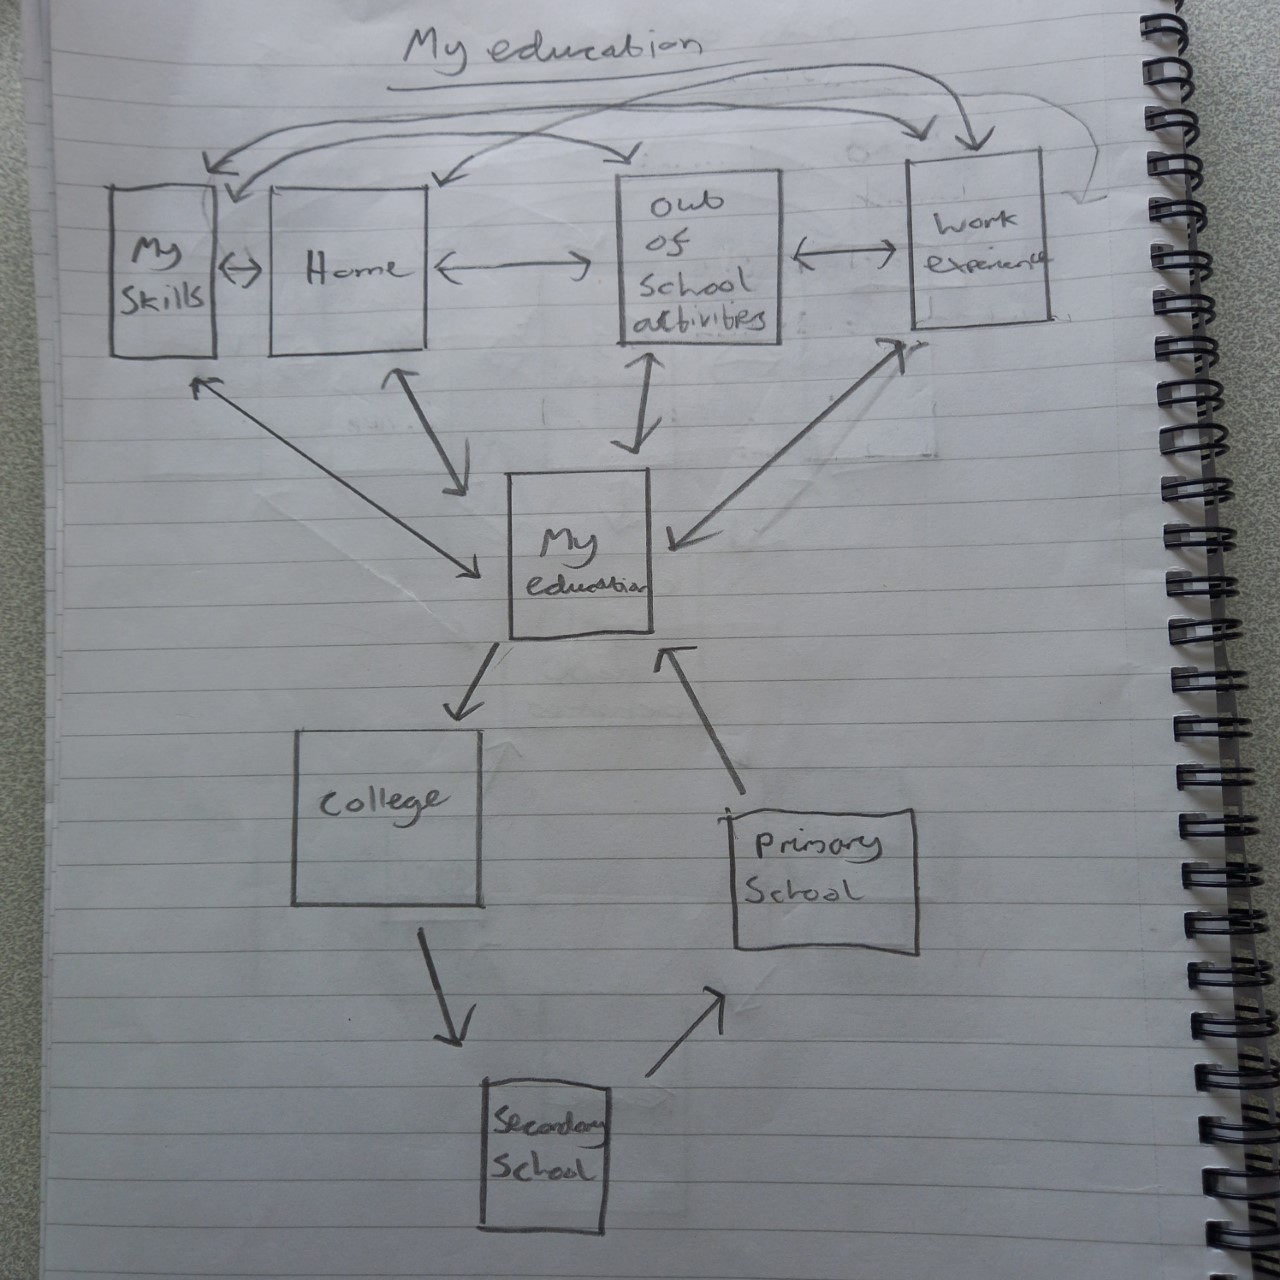 My education
My
Skills
Home
out
of
School
activities
work
experience
My
education
College
Primary
School
Secondary
School